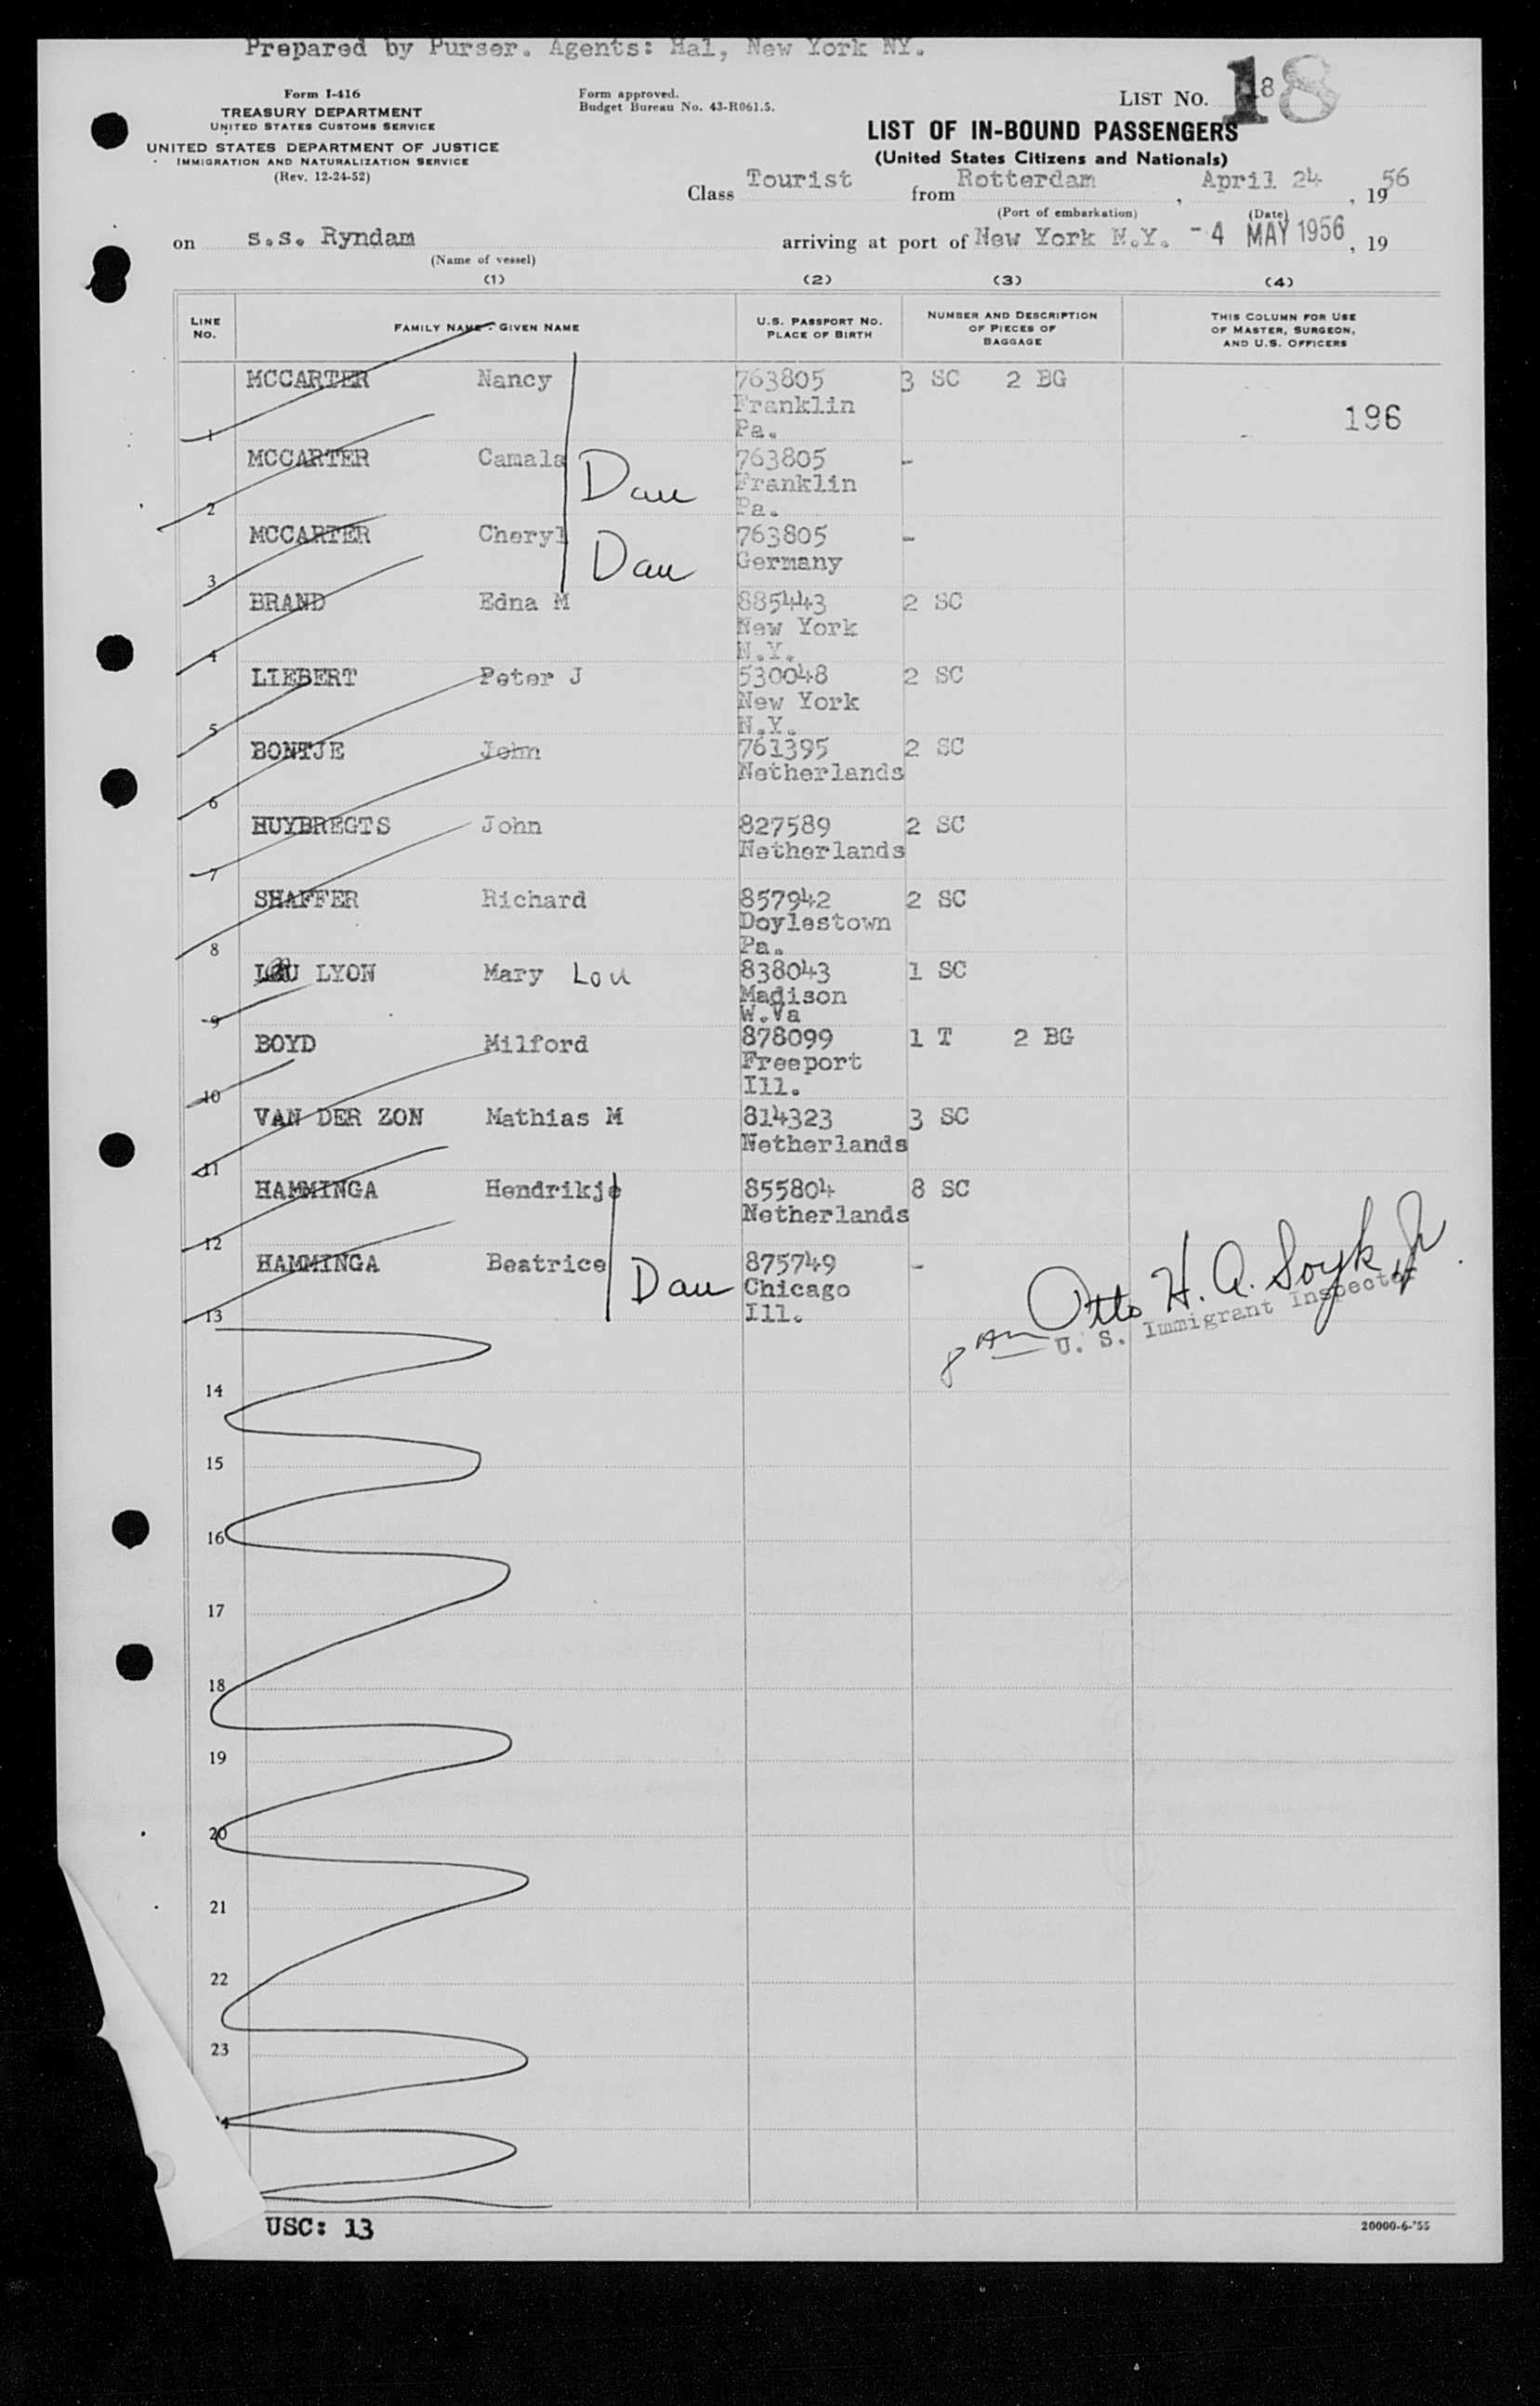 Prepared by Purser. Agents: Hal, New York NY.
Form I-416
TREASURY DEPARTMENT
UNITED STATES CUSTOMS SERVICE
UNITED STATES DEPARTMENT OF JUSTICE
IMMIGRATION AND NATURALIZATION SERVICE
(Rev. 12-24-52)
Form approved.
Budget Bureau No. 43-R061.5.
LIST NO. 18
LIST OF IN-BOUND PASSENGERS
(United States Citizens and Nationals)
Class Tourist from Rotterdam, April 24, 1956
(Port of embarkation) (Date)
on s.s. Ryndam arriving at port of New York N.Y. -4 MAY 1956, 19
(Name of vessel)
(1) (2) (3) (4)
LINE NO. FAMILY NAME - GIVEN NAME U.S. PASSPORT NO. PLACE OF BIRTH NUMBER AND DESCRIPTION OF PIECES OF BAGGAGE THIS COLUMN FOR USE OF MASTER, SURGEON, AND U.S. OFFICERS
MCCARTER Nancy 763805 3 SC 2 BG
Franklin
196
1 Pa.
MCCARTER Camala 763805 -
Dau Franklin
2 Pa.
MCCARTER Cheryl 763805 -
Dau Germany
3
BRAND Edna M 885443 2 SC
New York
4 N.Y.
LIEBERT Peter J 530048 2 SC
New York
5 N.Y.
BONTJE John 761395 2 SC
Netherlands
6
HUYBREGTS John 827589 2 SC
Netherlands
7
SHAFFER Richard 857942 2 SC
Doylestown
8 Pa.
LOU LYON Mary Lou 838043 1 SC
Madison
9 W.Va
BOYD Milford 878099 1 T 2 BG
Freeport
10 Ill.
VAN DER ZON Mathias M 814323 3 SC
Netherlands
11
HAMMINGA Hendrikje 855804 8 SC
Netherlands
12
HAMMINGA Beatrice 875749 -
Dau Chicago
13 Ill.
Otto H. A. Soyk Jr.
U. S. Immigrant Inspector
14
15
16
17
18
19
20
21
22
23
USC: 13
20000-6-'55